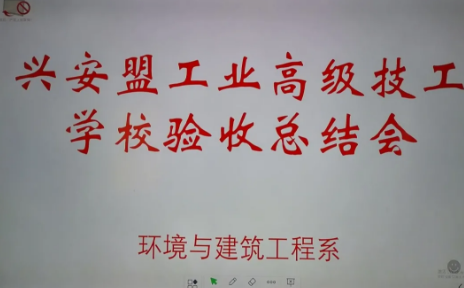 兴安盟工业高级技工
学校验收总结会
环境与建筑工程系